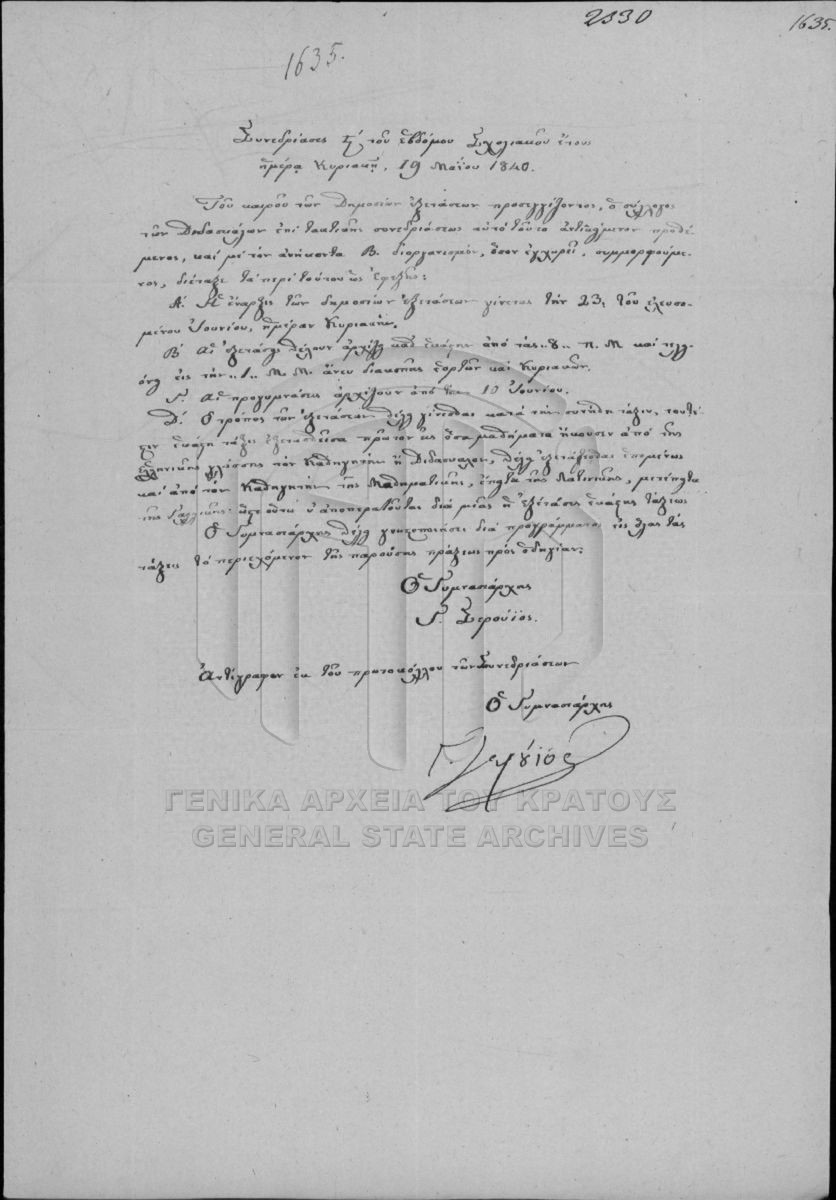 2330
1635.
1635.
Συνεδρίασις ζ΄ τοῦ ἑβδόμου Σχολιακοῦ ἔτους
ἡμέρᾳ Κυριακῇ, 19 Μαΐου 1840.
Τοῦ καιροῦ τῶν Δημοσίων ἐξετάσεων προσεγγίζοντος, ὁ σύλλογος
τῶν Διδασκάλων ἐπὶ τακτικῆς συνεδριάσεως αὐτὸ τοῦτο ἀντικείμενον προθέ-
μενος, καὶ μὲ τὸν ἀνήκοντα Β. διοργανισμὸν, ὅσον ἐγχωρεῖ, συμμορφούμε-
νος, διέταξε τὰ περὶ τούτου ὡς ἐφεξῆς:
Α. Ἡ ἔναρξις τῶν δημοσίων ἐξετάσεων γίνεται τὴν 23, τοῦ ἐλευσο-
μένου Ἰουνίου, ἡμέραν Κυριακήν.
Β. Αἱ ἐξετάσεις θέλουν ἀρχίζει καθ' ἑκάστην ἀπὸ τὰς "8" π. Μ καὶ τελει-
όνει εἰς τὴν "1" Μ. Μ. ἄνευ διακοπῆς ἑορτῶν καὶ Κυριακῶν.
Γ. Αἱ προγυμνάσεις ἀρχίζουν ἀπὸ 10 Ἰουνίου.
Δ. Ὁ τρόπος τῶν ἐξετάσεων θέλει γίνεσθαι κατὰ τὴν συνήθη τάξιν, τουτέ-
στιν ἑκάστη τάξις ἐξετασθεῖσα πρῶτον εἰς ὅσα μαθήματα ἤκουσεν ἀπὸ τῆς
Ἑλληνικῆς γλώσσης τὸν Καθηγητὴν ἢ Διδάσκαλον, θέλει ἐξετάζεσθαι ἑπομένως
καὶ ἀπὸ τὸν Καθηγητὴν τῆς Μαθηματικῆς, ἔπειτα τῆς Λατινικῆς, μετέπειτα
τῆς Γαλλικῆς: ὥστε οὕτω ν' ἀποπερατοῦται διὰ μιᾶς ἡ ἐξέτασις ἑκάστης τάξεως
Ὁ Γυμνασιάρχης θέλει γνωστοποιήσει διὰ προγράμματος εἰς ὅλας τὰς
τάξεις τὸ περιεχόμενον τῆς παρούσης πράξεως πρὸς ὁδηγίαν:
Ὁ Γυμνασιάρχης
Γ. Σερούϊος.
Ἀντίγραφον ἐκ τοῦ πρωτοκόλλου τῶν Συνεδριάσεων
Ὁ Γυμνασιάρχης
Γ. Σερούϊος
ΓΕΝΙΚΑ ΑΡΧΕΙΑ ΤΟΥ ΚΡΑΤΟΥΣ
GENERAL STATE ARCHIVES